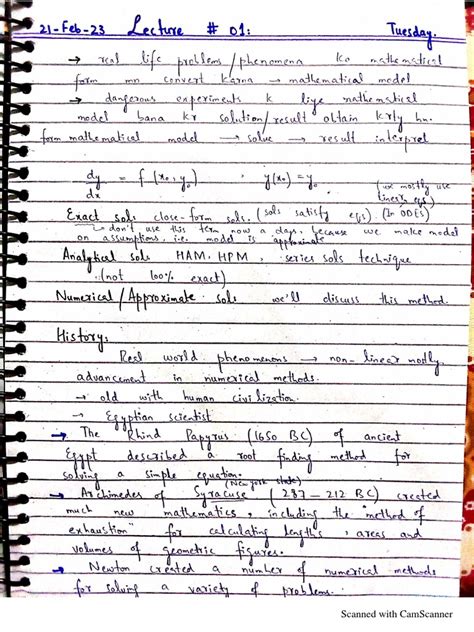 21-Feb-23 Lecture # 01: Tuesday.
→ real life problems/phenomena ko mathematical
form mn convert karna → mathematical model
→ dangerous experiments k liye mathematical
model bana kr solution/result obtain krly hn.
form mathematical model → solve → result interpret
dy/dx = f(x₀,y₀) y(x₀)=y₀ (we mostly use
linear eqs)
Exact sols close-form sols. (sols satisfy eqs). (In ODEs)
→ don't use this term now a days, because we make model
on assumptions, i.e. model is approximate
Analytical sols HAM, HPM, series sols technique
(not 100% exact)
Numerical/Approximate sols we'll discuss this method.
History:
Real world phenomenons → non-linear mostly.
advancement in numerical methods.
→ old with human civilization.
→ Egyptian scientist
→ The Rhind Papyrus (1650 BC) of ancient
Egypt described a root finding method for
solving a simple equation.
(New york state)
→ Archimedes of Syracuse (287-212 BC) created
much new mathematics, including the "method of
exhaustion" for calculating lengths, areas and
volumes of geometric figures.
→ Newton created a number of numerical methods
for solving a variety of problems.
Scanned with CamScanner